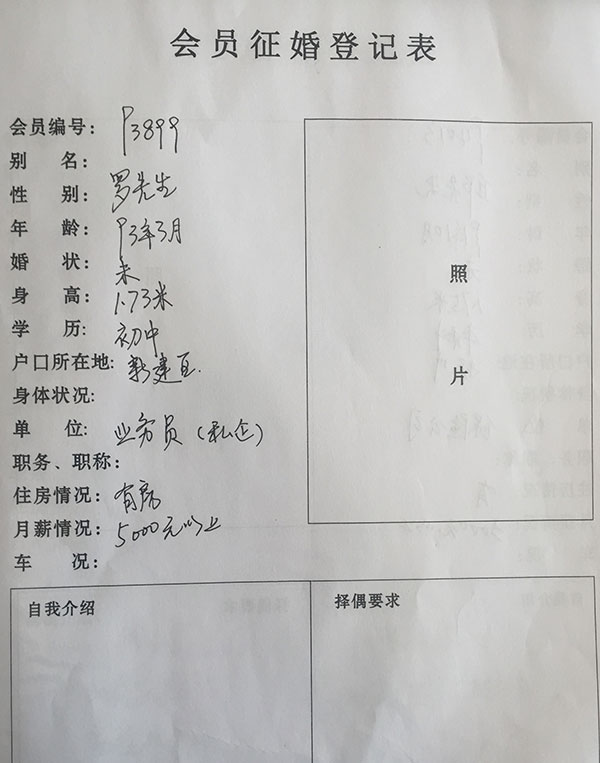 会员征婚登记表
会员编号: P3899
别 名:
性 别: 罗先生
年 龄: 93年3月
婚 状: 未
身 高: 1.73米
学 历: 初中
户口所在地: 新建区.
身体状况:
单 位: 业务员(私企)
职务、职称:
住房情况: 有房
月薪情况: 5000元以上
车 况:
照
片
自我介绍
择偶要求